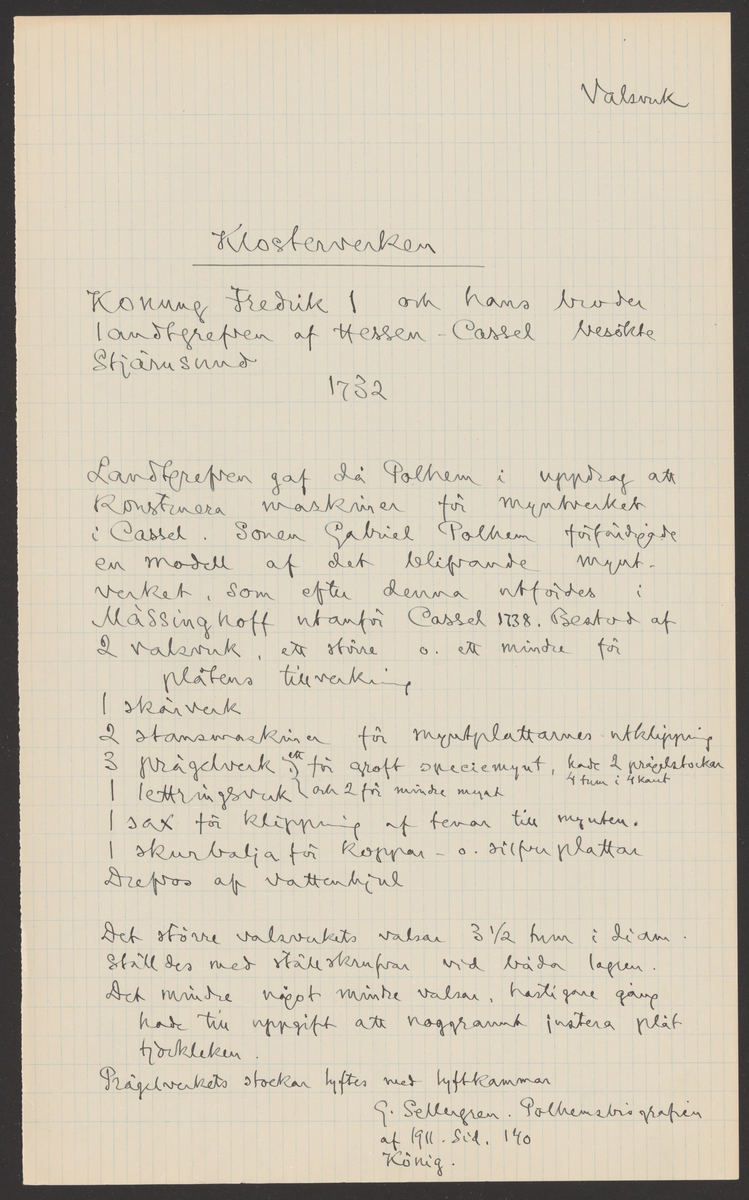 Valsverk
Klosterverken
Konung Fredrik I och hans broder
landtgrefven af Hessen-Cassel besökte
Stjärnsund
1732
Landtgrefven gaf då Polhem i uppdrag att
konstruera maskiner för myntverket
i Cassel. Sonen Gabriel Polhem förfärdigade
en modell af det blifvande mynt-
verket, som efter denna utfördes i
Mässinghoff utanför Cassel 1738. Bestod af
2 valsverk, ett större o. ett mindre för
plåtens tillverkning
1 skärverk
2 stansmaskiner för myntplattarnes utklippning
3 prägelverk, ett för groft speciemynt, hade 2 prägelstockar
4 tum i 4kant
1 lettringsverk och 2 för mindre mynt
1 sax för klippning af tenar till mynten.
1 skurbalja för koppar- o. silfverplattar
Drefvos af vattenhjul
Det större valsverkets valsar 3 1/2 tum i diam.
Ställdes med ställskrufvar vid båda lagren.
Det mindre något mindre valsar, hastigare gång
hade till uppgift att noggrannt justera plåt
tjockleken.
Prägelverkets stockar lyftes med lyftkammar
G. Sellergren. Polhemsbiografien
af 1911. Sid. 140
König.